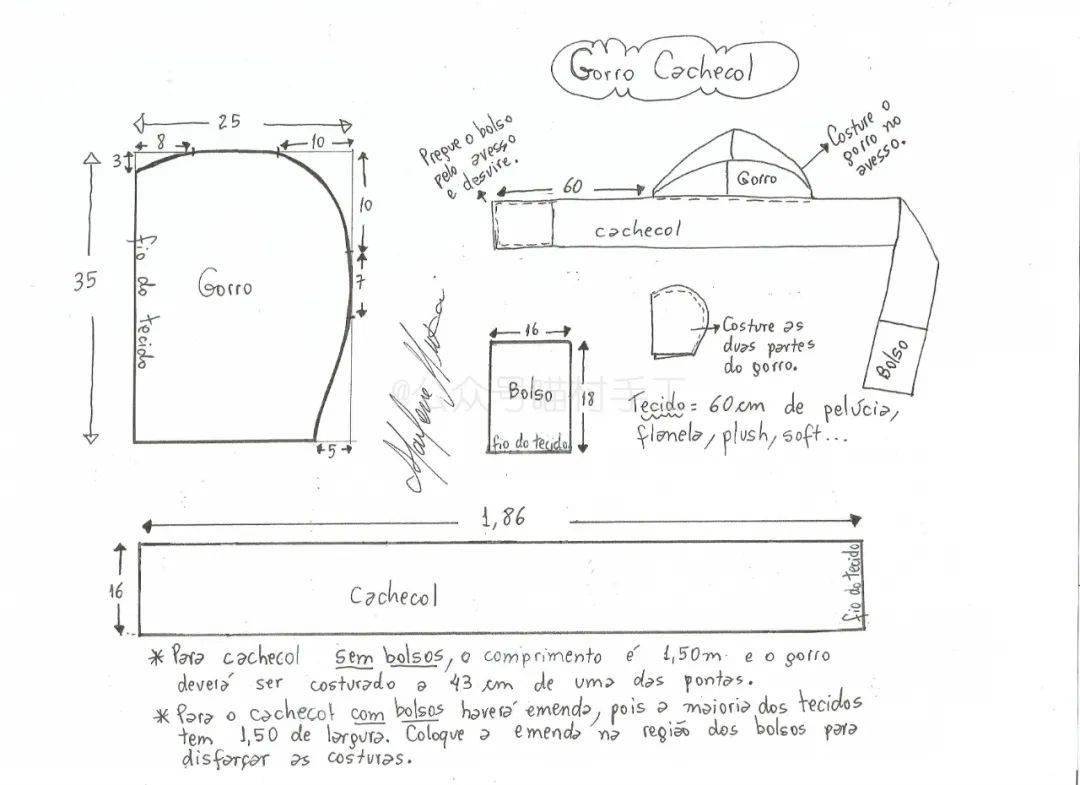 Gorro Cachecol
25
8
10
3
10
7
35
fio do tecido
Gorro
5
Pregue o bolso
pelo avesso
e desvire.
60
Gorro
Costure o
gorro no
avesso.
cachecol
Bolso
16
Bolso
18
fio do tecido
Costure as
duas partes
do gorro.
Tecido = 60 cm de pelúcia,
flanela, plush, soft...
@公众号喵村手工
1,86
16
Cachecol
fio do tecido
* Para cachecol sem bolsos, o comprimento é 1,50m e o gorro
deverá ser costurado a 43 cm de uma das pontas.
* Para o cachecol com bolsos haverá emenda, pois a maioria dos tecidos
tem 1,50 de largura. Coloque a emenda na região dos bolsos para
disfarçar as costuras.